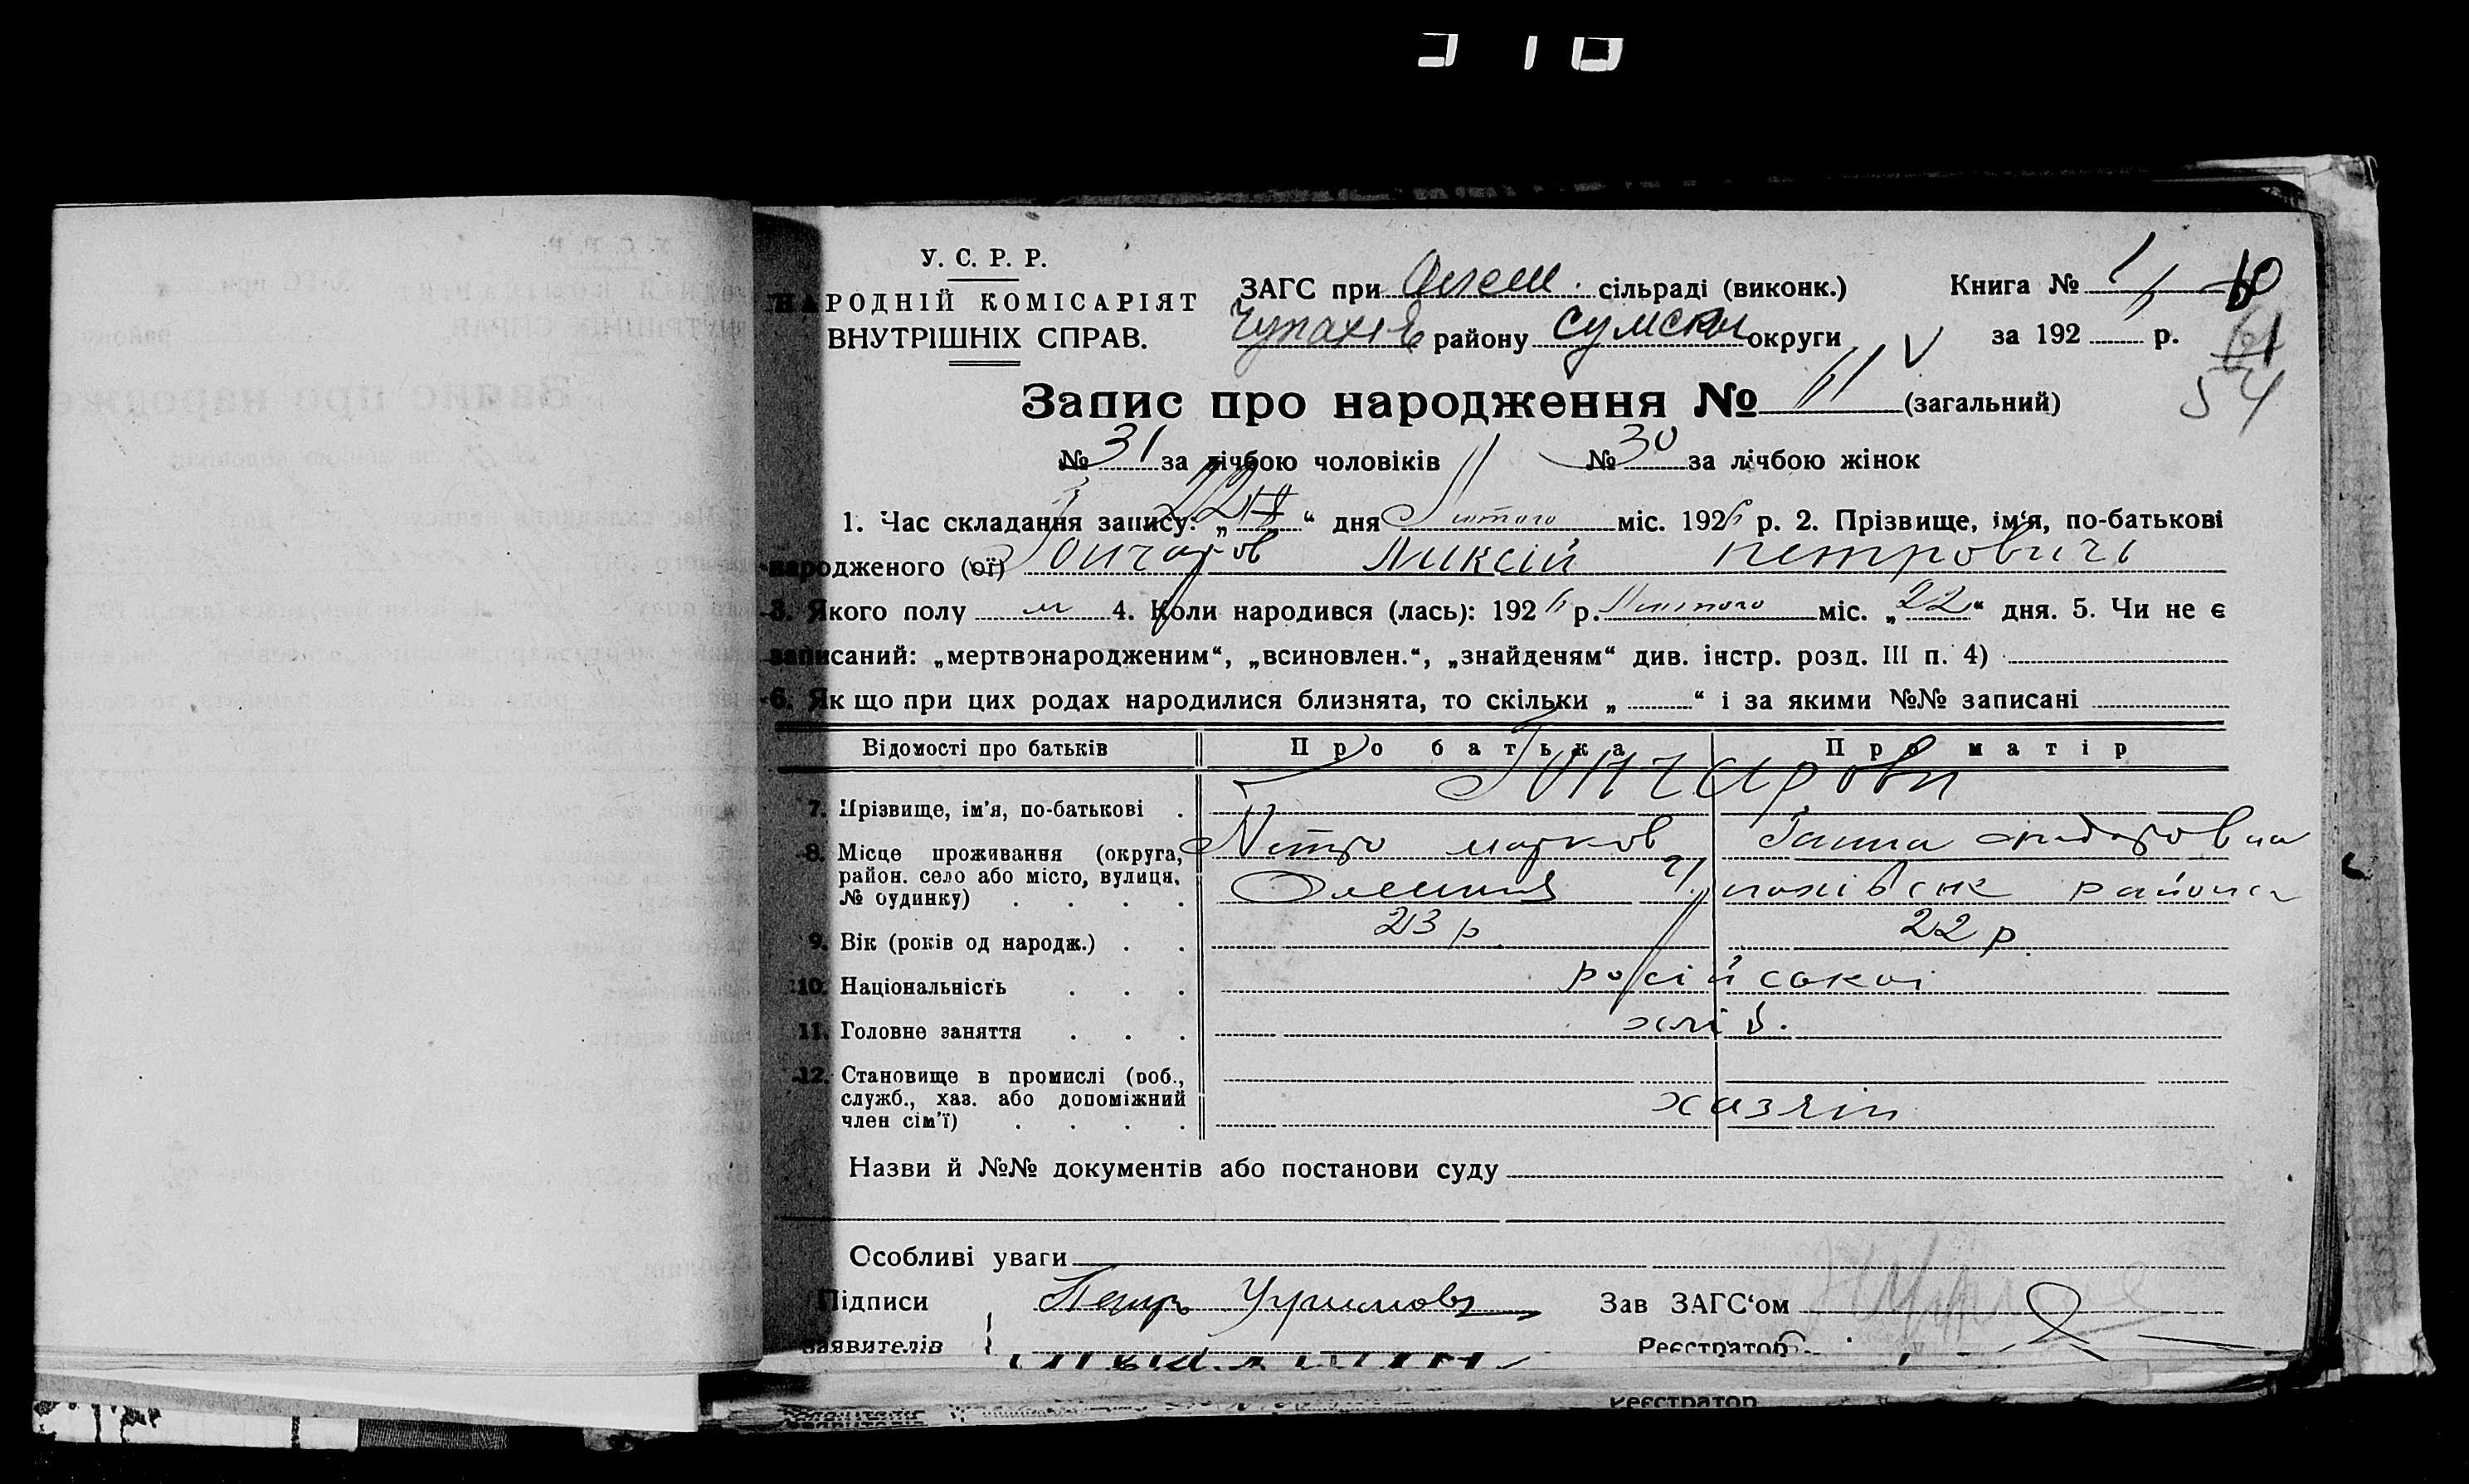 У. С. Р. Р.
НАРОДНІЙ КОМІСАРІЯТ
ВНУТРІШНІХ СПРАВ.
ЗАГС при сільраді (виконк.)
району Сумской округи
Книга №
за 192 р.
61
54
Запис про народження № 61 (загальний)
№ 31 за лічбою чоловіків № 30 за лічбою жінок
1. Час складання запису: „22“ дня Лютого міс. 1926 р. 2. Прізвище, ім‘я, по-батькові
народженого (ої) Гончаров Ликсій петровичь
3. Якого полу м 4. Коли народився (лась): 1926 р. Лютого міс. „22“ дня. 5. Чи не є
записаний: „мертвонародженим“, „всиновлен.“, „знайденям“ див. інстр. розд. III п. 4)
6. Як що при цих родах народилися близнята, то скільки „ “ і за якими №№ записані
Відомості про батьків Про батька Про матір
7. Прізвище, ім’я, по-батькові . Гончарови
Петро марков Ганна
8. Місце проживання (округа,
район. село або місто, вулиця,
№ будинку) . . . . района
9. Вік (років од народж.) . . 23 р. 22 р.
10. Національність . . . російської
11. Головне заняття . . . хліб.
12. Становище в промислі (роб.,
служб., хаз. або допоміжний
член сім’ї) . . . . хазяін
Назви й №№ документів або постанови суду
Особливі уваги
Підписи Петръ
заявителів
Зав ЗАГС‘ом
Реєстратор
Реєстратор